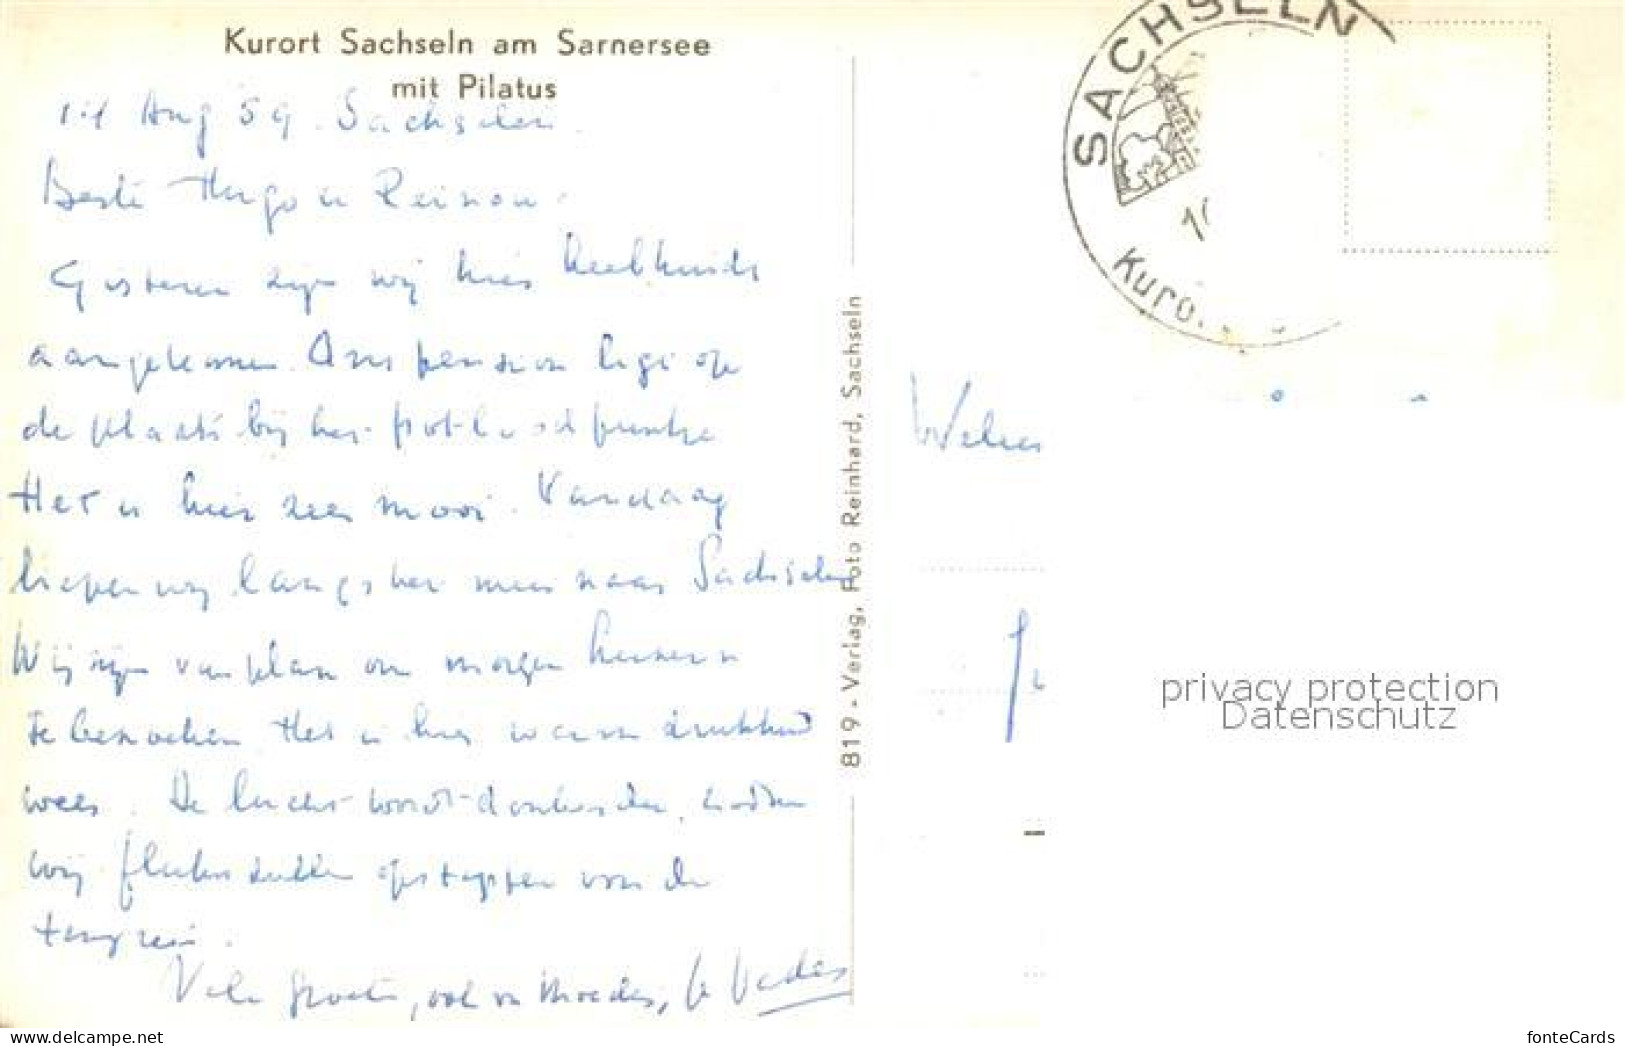 Kurort Sachseln am Sarnersee
mit Pilatus
11 Aug 59. Sachseln.
Beste Hugo en Reinou.
Gisteren zijn wij hier heelhuids
aangekomen. Ons pension ligt op
de plaats bij het potlood puntje
Het is hier zeer mooi. Vandaag
liepen wij langs het meer naar Sachseln
Wij zijn van plan om morgen Luzern
te bezoeken. Het is hier warm drukkend
weer. De lucht wordt donkerder, zodra
wij flink zullen opstappen van de
terugreis.
Vele groeten, ook van Moeder, je Vader
819 - Verlag, Foto Reinhard, Sachseln
SACHSELN
Kuro
privacy protection
Datenschutz
the world's largest marketplace for collectors
fonteCards